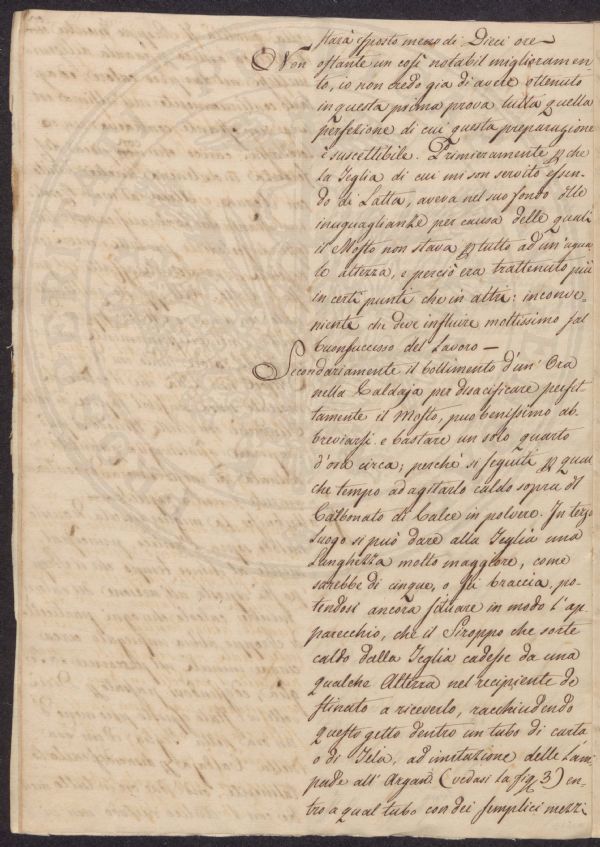 starà esposto meno di Dieci ore —
Non ostante un così notabil miglioramen
to, io non credo gia di avere ottenuto
in questa prima prova tutta quella
perfezione di cui questa preparazione
è suscettibile. Primieramente p che
la Teglia di cui mi son servito essen
do di Latta, aveva nel suo fondo delle
inuguaglianze per causa delle quali
il Mosto non stava p tutto ad un' ugua
le altezza, e perciò era trattenuto più
in certi punti che in altri: inconve
niente che deve influire moltissimo sul
buon successo del Lavoro —
Secondariamente il bollimento d'un' Ora
nella Caldaja per disacificare perfet
tamente il Mosto, può benissimo ab
breviarsi e bastare un solo quarto
d'ora circa; perchè si seguiti p qual
che tempo ad agitarlo caldo sopra il
Carbonato di Calce in polvere. In terzo
luogo si può dare alla Teglia una
Lunghezza molto maggiore, come
sarebbe di cinque, o sei braccia, po
tendosi ancora situare in modo l'ap
parecchio, che il Siroppo che sorte
caldo dalla Teglia cadesse da una
qualche Altezza nel recipiente de
stinato a riceverlo, racchiudendo
questo getto dentro un tubo di carta
o di Tela, ad imitazione delle Lam
pade all' Argand. (vedasi la fig. 3) en
tro a qual tubo con dei semplici mezzi